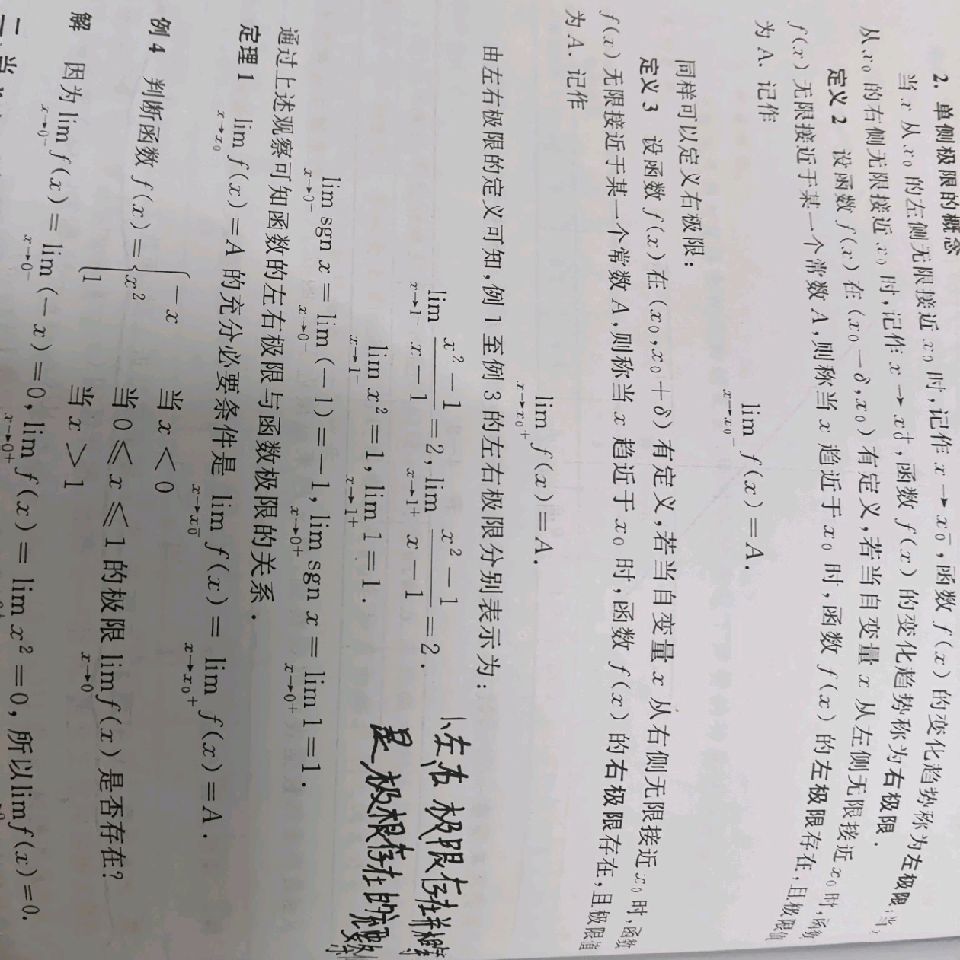 2. 单侧极限的概念
当 x 从 x₀ 的左侧无限接近 x₀ 时,记作 x→x₀⁻,函数 f(x) 的变化趋势称为左极限;当
从 x₀ 的右侧无限接近 x₀ 时,记作 x→x₀⁺,函数 f(x) 的变化趋势称为右极限.
定义 2 设函数 f(x) 在 (x₀-δ,x₀) 有定义,若当自变量 x 从左侧无限接近 x₀ 时,函数
f(x) 无限接近于某一个常数 A,则称当 x 趋近于 x₀ 时,函数 f(x) 的左极限存在,且极限值
为 A. 记作
lim f(x)=A.
x→x₀⁻
同样可以定义右极限:
定义 3 设函数 f(x) 在 (x₀,x₀+δ) 有定义,若当自变量 x 从右侧无限接近 x₀ 时,函数
f(x) 无限接近于某一个常数 A,则称当 x 趋近于 x₀ 时,函数 f(x) 的右极限存在,且极限值
为 A. 记作
lim f(x)=A.
x→x₀⁺
由左右极限的定义可知,例 1 至例 3 的左右极限分别表示为:
lim(x→1⁻) (x²-1)/(x-1)=2, lim(x→1⁺) (x²-1)/(x-1)=2.
lim(x→1⁻) x²=1, lim(x→1⁺) 1=1.
lim(x→0⁻) sgn x=lim(x→0⁻) (-1)=-1, lim(x→0⁺) sgn x=lim(x→0⁺) 1=1.
左右极限存在并相等
是极限存在的
通过上述观察可知函数的左右极限与函数极限的关系.
定理 1 lim(x→x₀) f(x)=A 的充分必要条件是 lim(x→x₀⁻) f(x)=lim(x→x₀⁺) f(x)=A.
-x 当 x<0
例 4 判断函数 f(x)={x² 当 0≤x≤1 的极限 lim(x→0) f(x) 是否存在?
1 当 x>1
解 因为 lim(x→0⁻) f(x)=lim(x→0⁻) (-x)=0, lim(x→0⁺) f(x)=lim x²=0, 所以 lim f(x)=0.
二、当